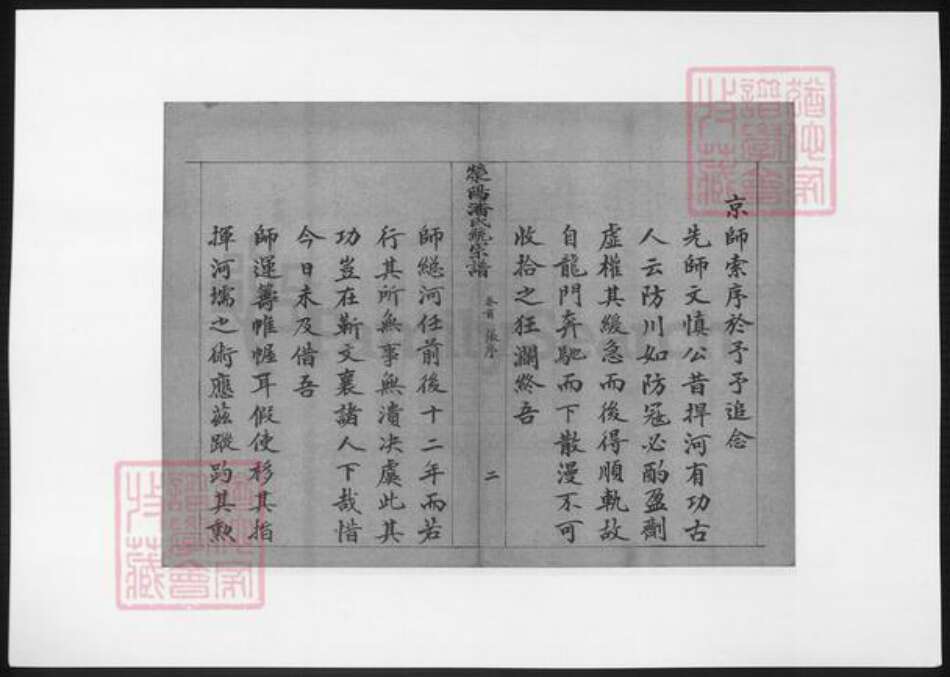 京師索序於予予追念
先師文慎公昔捍河有功古
人云防川如防寇必酌盈劑
虛權其緩急而後得順軌故
自龍門奔馳而下散漫不可
收拾之狂瀾終吾
滎陽潘氏統宗譜
卷首 張序
二
師總河任前後十二年而若
行其所無事無潰决虞此其
功豈在靳文襄諸人下哉惜
今日未及借吾
師運籌帷幄耳假使衫其指
揮河壖之術應茲蹤趵其勲
譜學會
收藏
譜學會
收藏